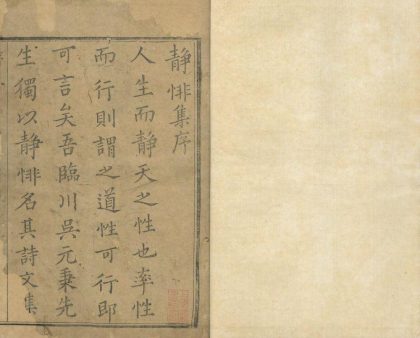 静悱集序
人生而静天之性也率性
而行則謂之道性可行即
可言矣吾臨川吳元秉先
生獨以静悱名其詩文集